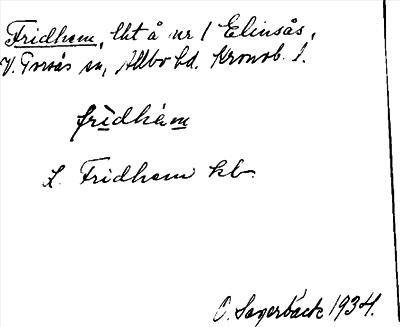 Fridhem, lht å nr 1 Elinsås,
V. Torsås sn, Allbo hd. Kronob. l.
fridhem
L. Fridhem kb.
C. Sagerbäck 1934.